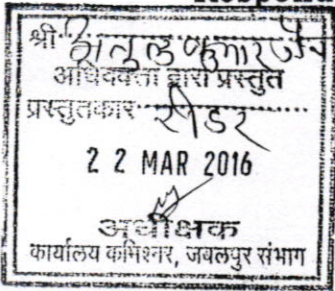 श्री अतुल कुमार जैन
अधिवक्ता द्वारा प्रस्तुत
प्रस्तुतकार रीडर
2 2 MAR 2016
अधीक्षक
कार्यालय कमिश्नर, जबलपुर संभाग